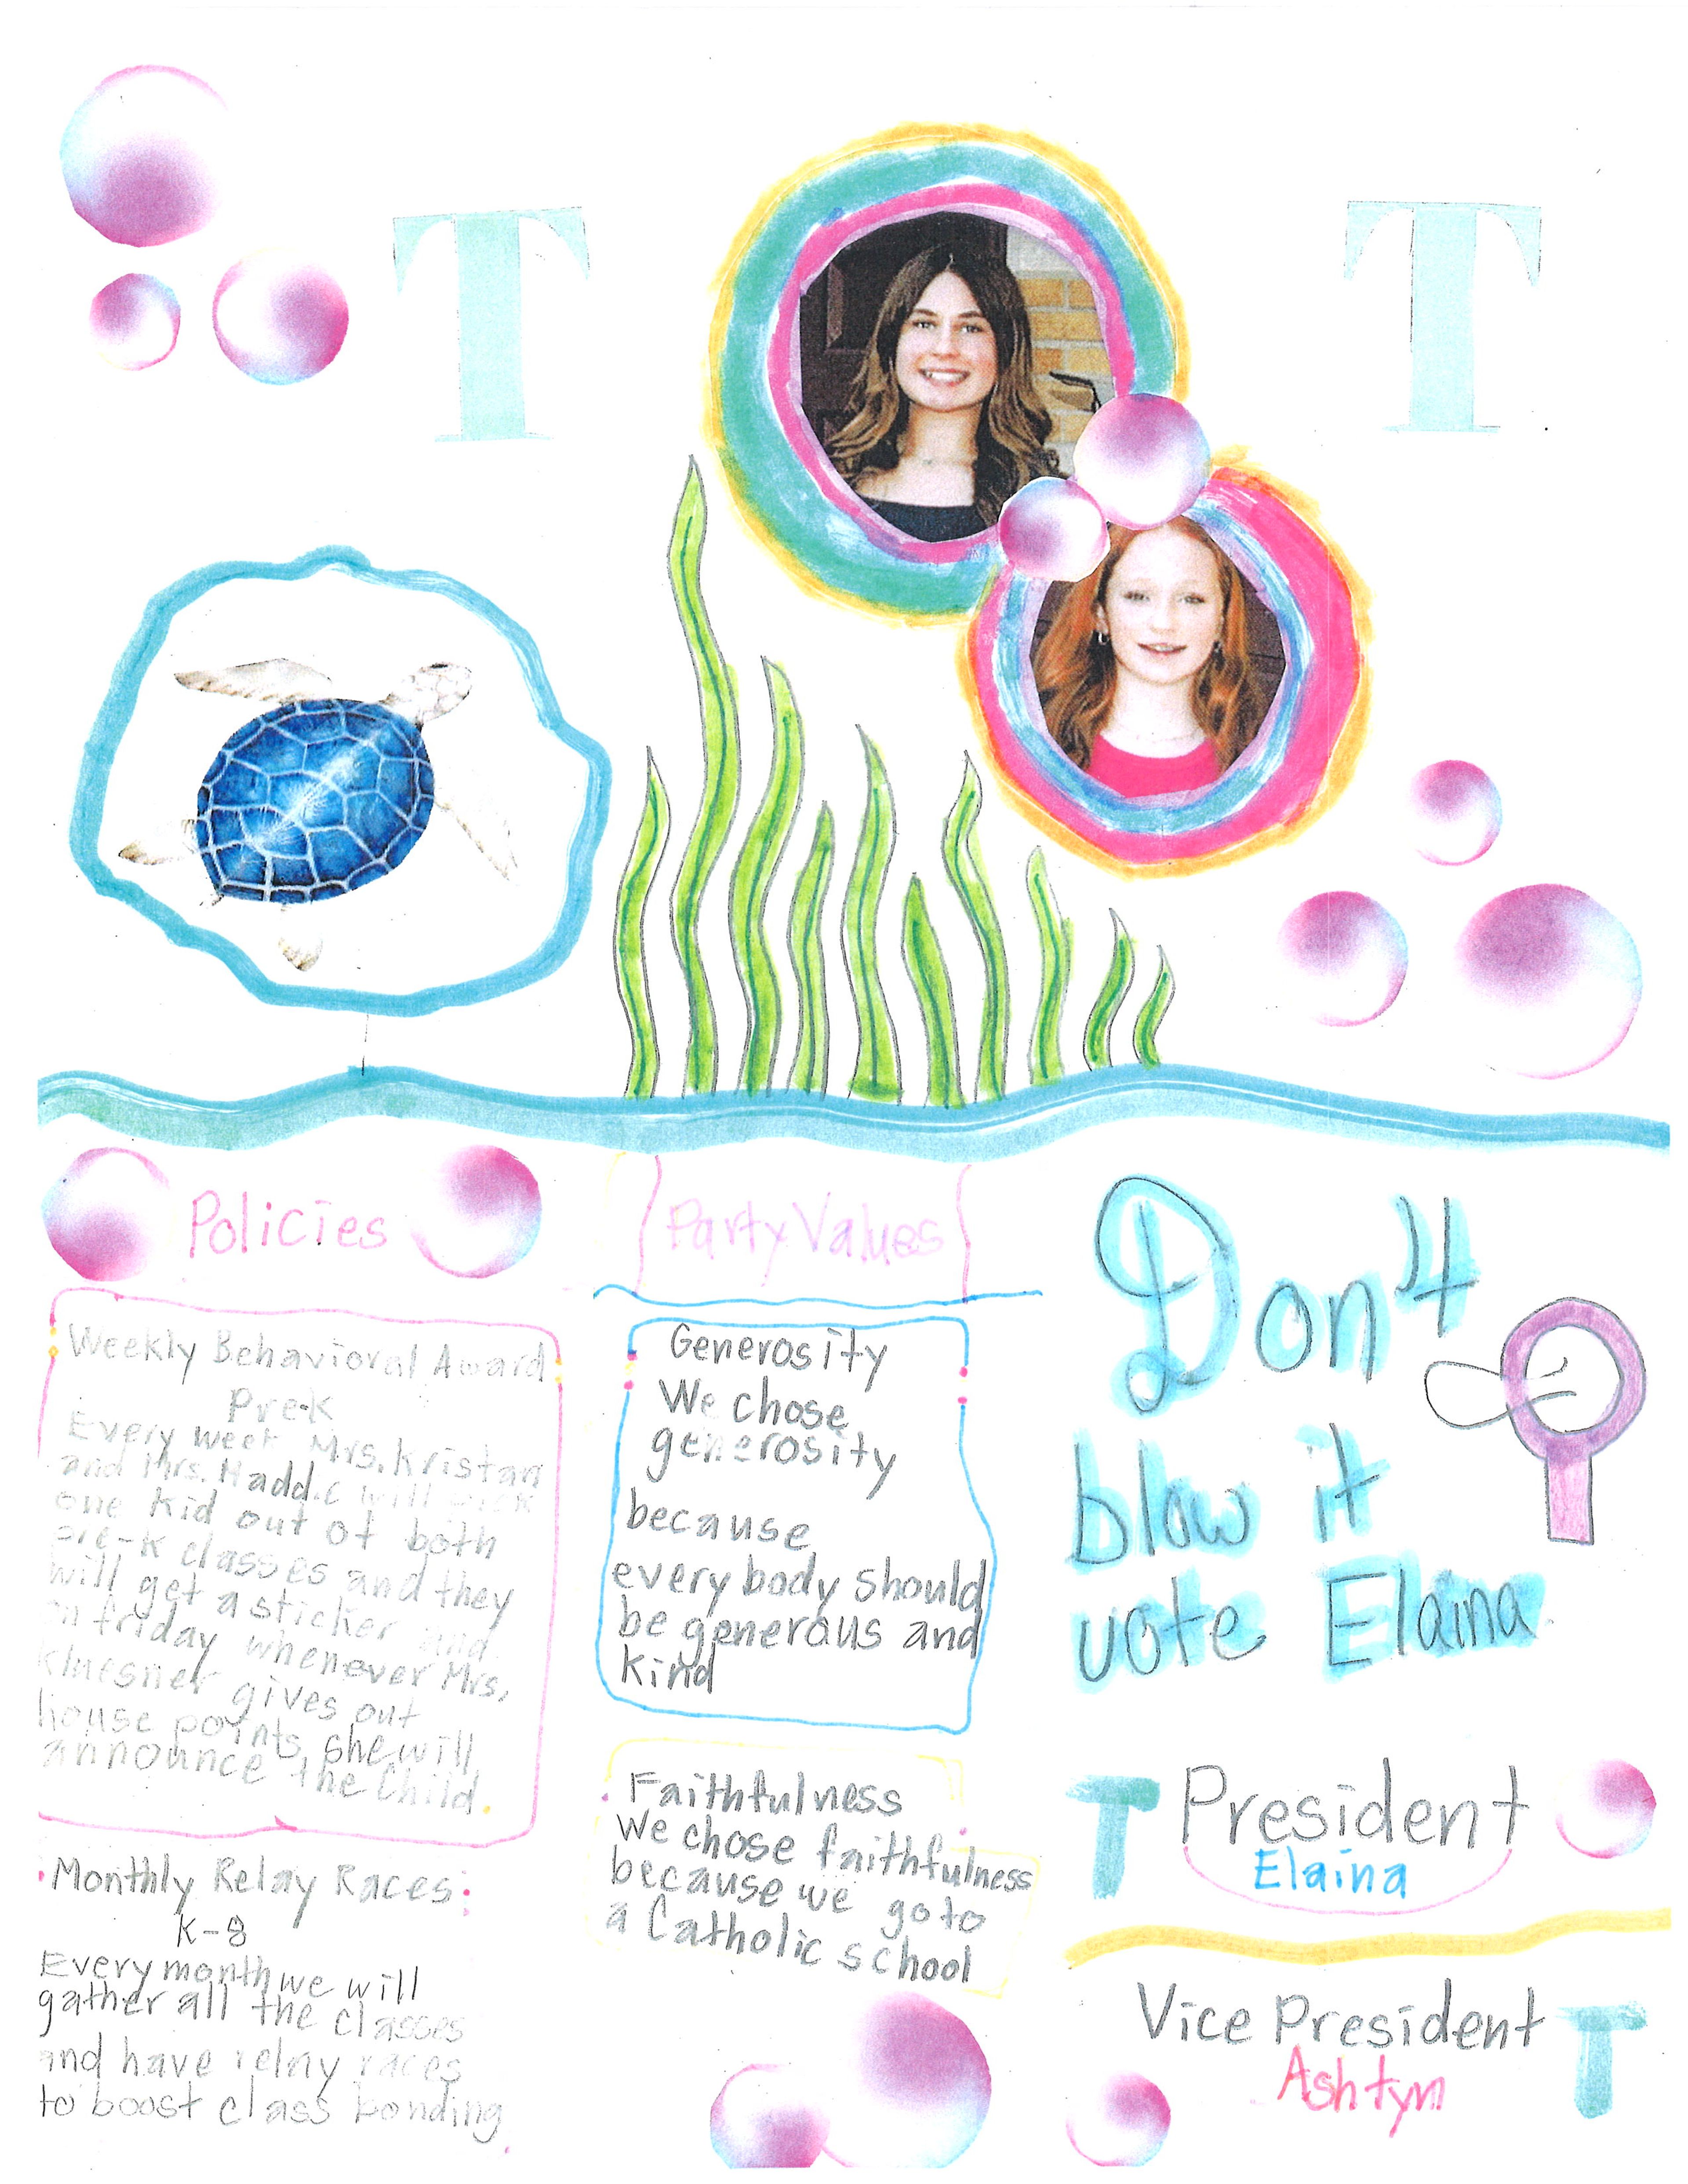 T T
Policies
Weekly Behavioral Award
Pre-K
Every week Mrs. Kristan
and Mrs. will
one kid out of both
pre-k classes and they
will get a sticker and
on friday whenever Mrs.
Klnesner gives out
house points, she will
announce the Child.
Monthly Relay Races:
K-8
Every month we will
gather all the classes
and have relay races
to boost class bonding
Party Values
Generosity
We chose
generosity
because
everybody should
be generous and
kind
Faithfulness
We chose faithfulness
because we go to
a Catholic school
Don't
blow it
vote Elaina
T President
Elaina
Vice President T
Ashtyn